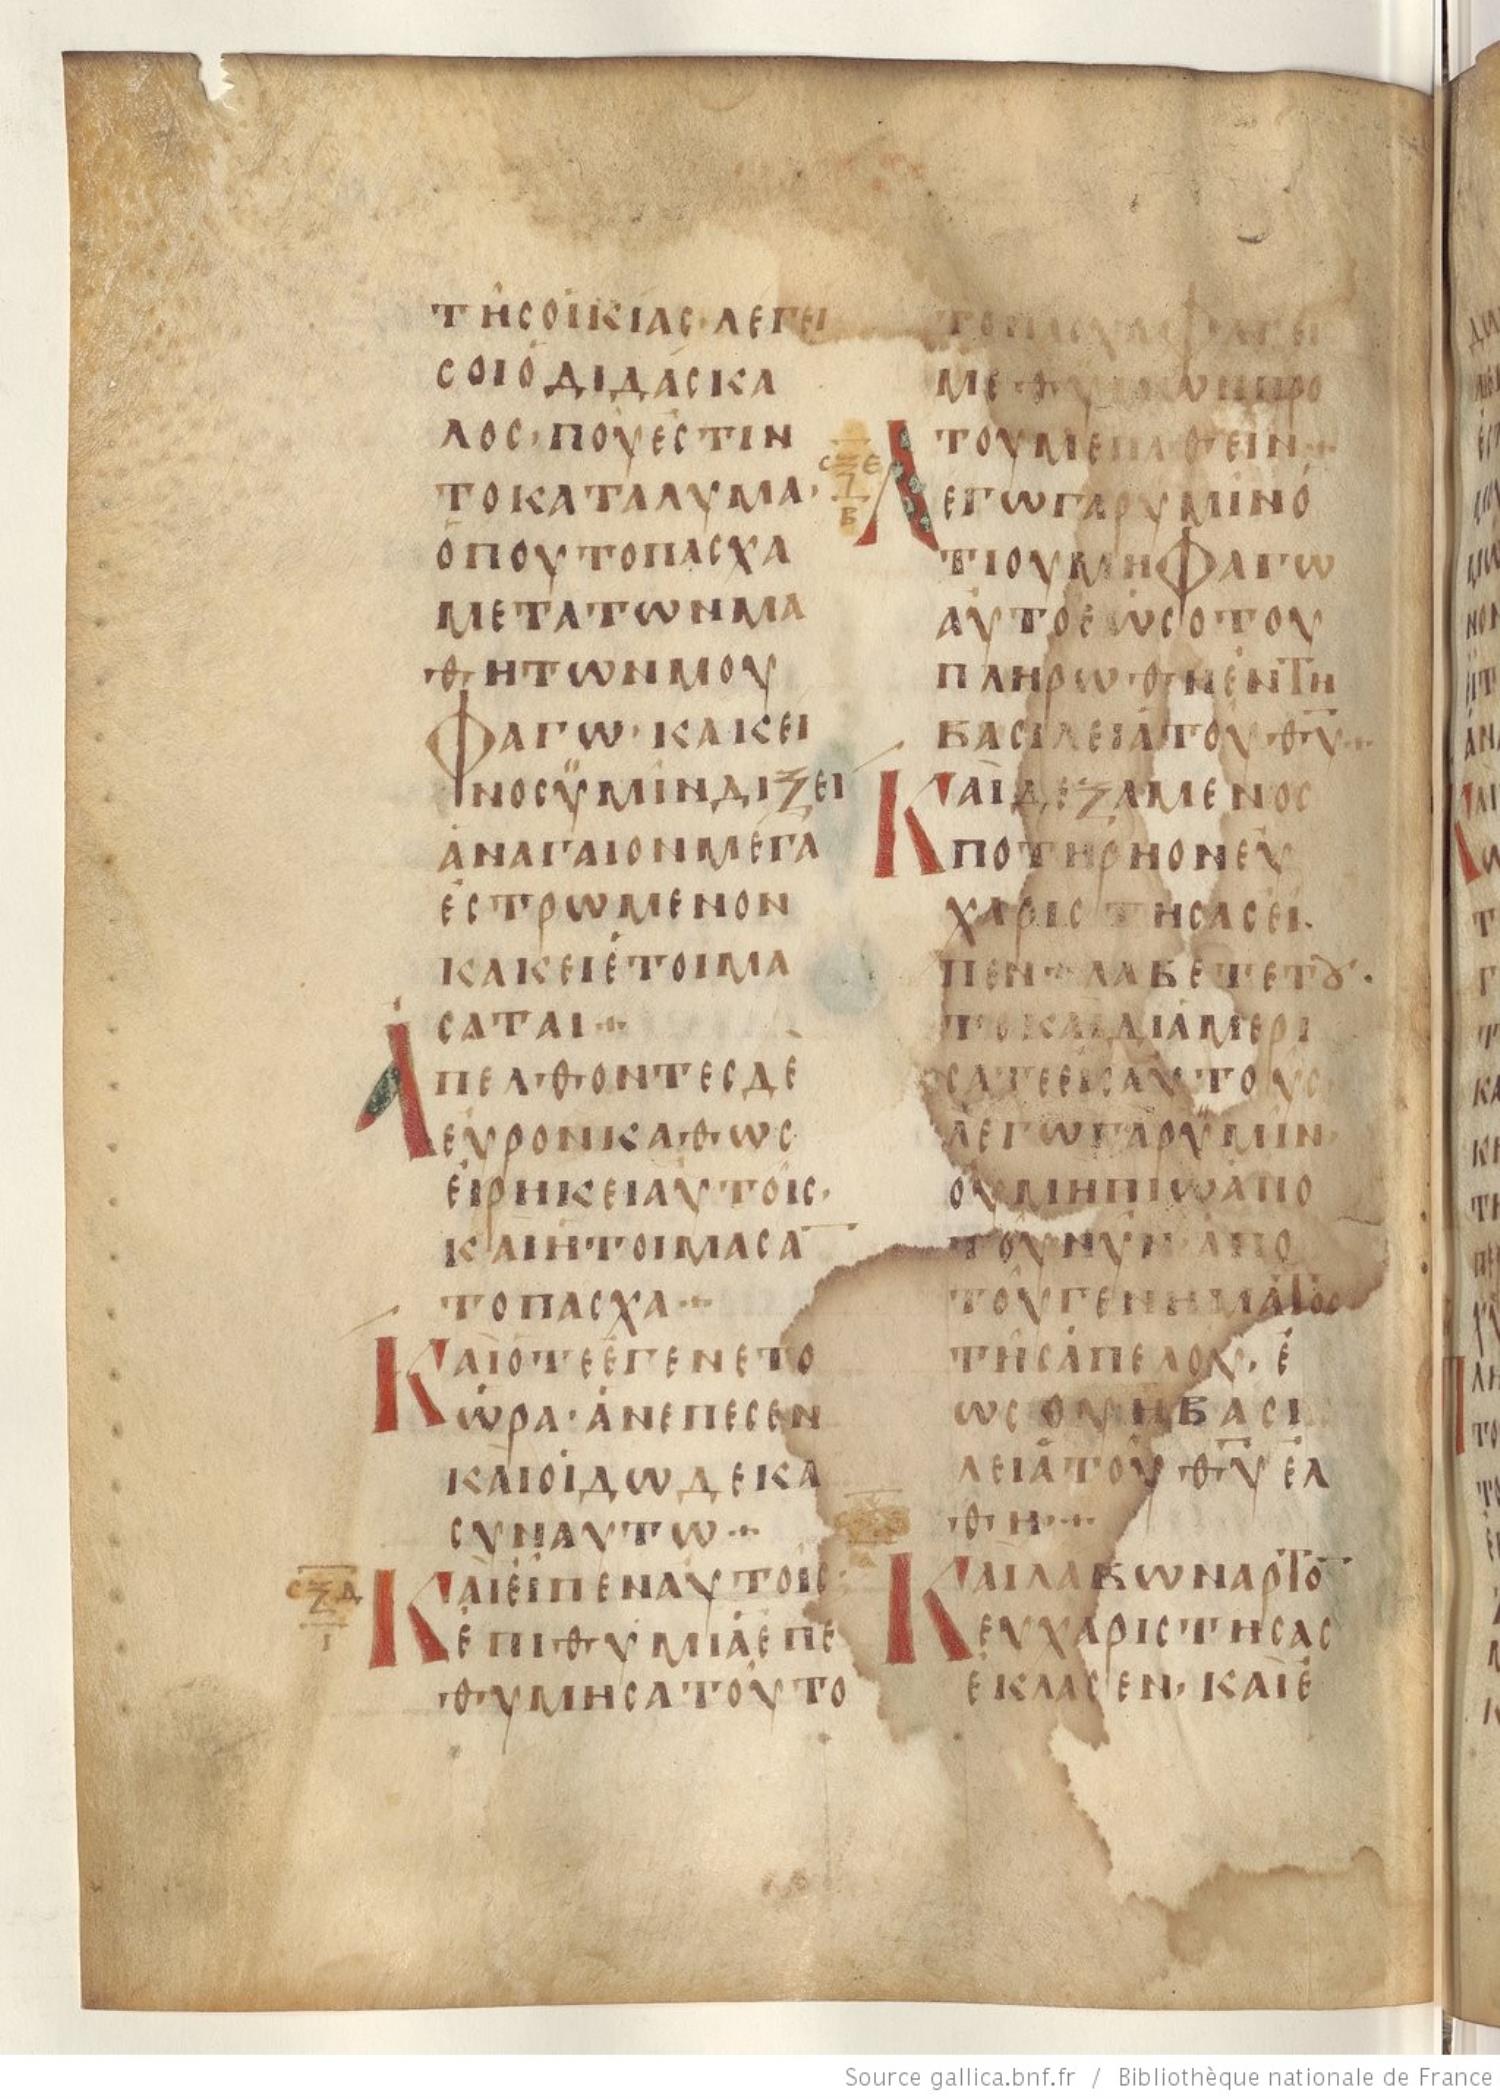 ΤΗ̂CΟΙΚΊΑC·ΛΈΓΕΙ
CΟΙὉΔΙΔΆCΚΑ
ΛΟC·ΠΟΥ͂ἘCΤΙΝ
ΤΟΚΑΤΑΛΥΜΑ·
ὍΠΟΥΤΟΠΑCΧΑ
ΜΕΤΑΤΩΝΜΑ
ΘΗΤΩΝΜΟΥ
ΦΑΓΩ·ΚΑΚΕΙ
ΝΟCΫΜΙΝΔΙΞΕΙ
ἈΝΑΓΑΙΟΝΜΕΓΑ
ἘCΤΡΩΜΕΝΟΝ
ΚΑΚΕΙἘΤΟΙΜΑ
CΑΤΑΙ·÷
ΑΠΕΛΘΟΝΤΕCΔῈ
ΕὙΡΟΝΚΑΘΩC
ΕἸΡΗΚΕΙΑΥΤΟΙC·
ΚΑΙΗΤΟΙΜΑCΑ̅
ΤΟΠΑCΧΑ·÷
ΚΑΙΟΤΕΕΓΕΝΕΤΟ
ΩΡΑ·ἈΝΕΠΕCΕΝ
ΚΑΙΟΙΔΩΔΕΚΑ
CΥΝΑΥΤΩ·÷
CΞΔ
Ι
ΚΑΙΕΙΠΕΝΑΥΤΟΙC·
ἘΠΙΘΥΜΙΑἘΠΕ
ΘΥΜΗCΑΤΟΥΤΟ
ΤΟΠΑCΧΑΦΑΓΕΙ
ΜΕΘΥΜΩΝΠΡΟ
ΤΟΥΜΕΠΑΘΕΙΝ·÷
CΞΕ
Β
ΛΕΓΩΓΑΡΥΜΙΝὉ
ΤΙΟΥΜΗΦΑΓΩ
ΑΥΤΟΕΩCΟΤΟΥ
ΠΛΗΡΩΘΗΕΝΤΗ
ΒΑCΙΛΕΙΑΤΟΥΘ̅Υ̅·÷
ΚΑΙΔΕΞΑΜΕΝΟC
ΠΟΤΗΡΗΟΝΕΥ
ΧΑΡΙCΤΗCΑCΕΙ
ΠΕΝ·ΛΑΒΕΤΕΤȢ·
ΤΟΚΑΙΔΙΑΜΕΡΙ
CΑΤΕΕΙCΑΥΤΟΥC
ΛΕΓΩΓΑΡΫΜΙΝ·
ΟΥΜΗΠΙΩΑΠΟ
ΤΟΥΝΥΝ·ΑΠΟ
ΤΟΥΓΕΝΗΜΑΤΟC
ΤΗCΑΠΕΛΟΥ·Ε
ΩCΟΥΗΒΑCΙ
ΛΕΙΑΤΟΥΘ̅Υ̅ΕΛ
ΘΗ·÷
ΚΑΙΛΑΒΩΝΑΡΤΟ̅
ΕΥΧΑΡΙCΤΗCΑC
ΕΚΛΑCΕΝ·ΚΑΙΕ
Source gallica.bnf.fr / Bibliothèque nationale de France